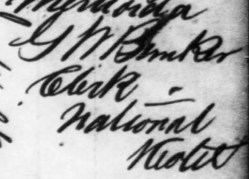 G W Bunker
Clerk
National
Hotel